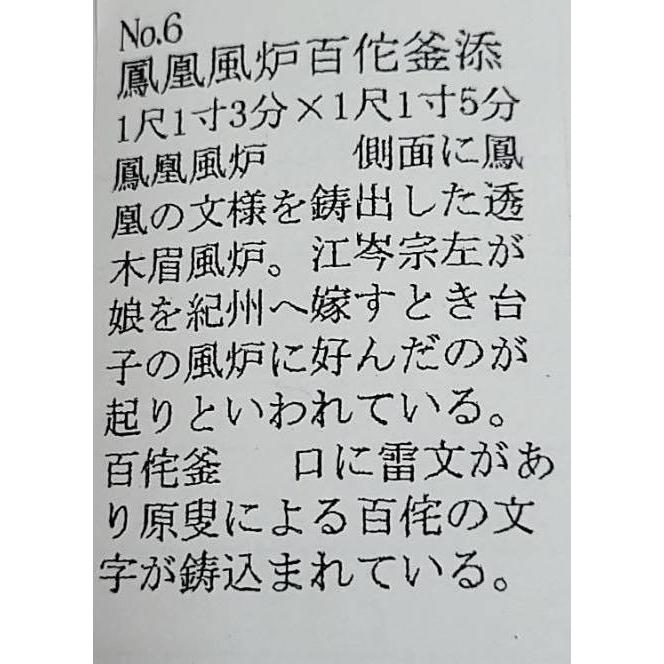 No.6
鳳凰風炉百侘釜添
1尺1寸3分×1尺1寸5分
鳳凰風炉　　側面に鳳
凰の文様を鋳出した透
木眉風炉。江岑宗左が
娘を紀州へ嫁すとき台
子の風炉に好んだのが
起りといわれている。
百侘釜　　口に雷文があ
り原叟による百侘の文
字が鋳込まれている。